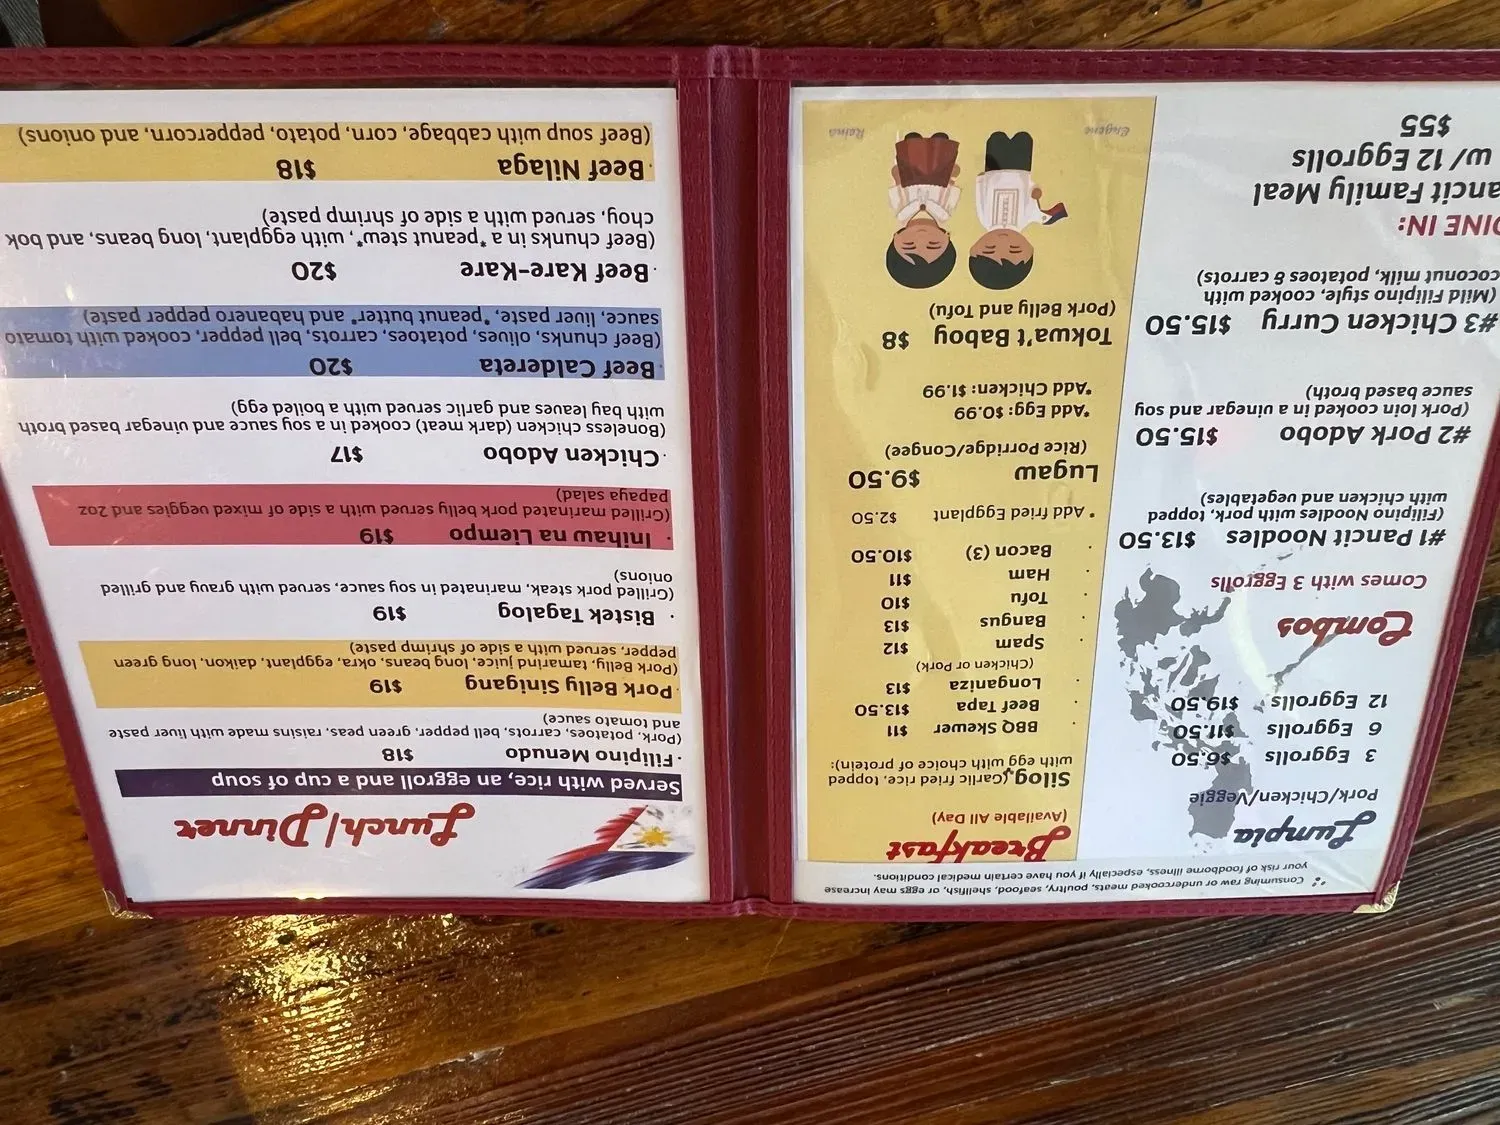 Lumpia
Pork/Chicken/Veggie
3 Eggrolls $6.50
6 Eggrolls $11.50
12 Eggrolls $19.50
Combos
Comes with 3 Eggrolls
#1 Pancit Noodles $13.50
(Filipino Noodles with pork, topped
with chicken and vegetables)
#2 Pork Adobo $15.50
(Pork loin cooked in a vinegar and soy
sauce based broth)
#3 Chicken Curry $15.50
(Mild Filipino style, cooked with
coconut milk, potatoes & carrots)
DINE IN:
ancit Family Meal
w/ 12 Eggrolls
$55
Breakfast
(Available All Day)
Silog (Garlic fried rice, topped
with egg with choice of protein):
· BBQ Skewer $11
· Beef Tapa $13.50
· Longaniza $13
(Chicken or Pork)
· Spam $12
· Bangus $13
· Tofu $10
· Ham $11
· Bacon (3) $10.50
* Add fried Eggplant $2.50
Lugaw $9.50
(Rice Porridge/Congee)
*Add Egg: $0.99
*Add Chicken: $1.99
Tokwa't Baboy $8
(Pork Belly and Tofu)
Eugene Reina
Consuming raw or undercooked meats, poultry, seafood, shellfish, or eggs may increase
your risk of foodborne illness, especially if you have certain medical conditions.
Lunch/Dinner
Served with rice, an eggroll and a cup of soup
· Filipino Menudo $18
(Pork, potatoes, carrots, bell pepper, green peas, raisins made with liver paste
and tomato sauce)
· Pork Belly Sinigang $19
(Pork Belly, tamarind juice, long beans, okra, eggplant, daikon, long green
pepper, served with a side of shrimp paste)
· Bistek Tagalog $19
(Grilled pork steak, marinated in soy sauce, served with gravy and grilled
onions)
· Inihaw na Liempo $19
(Grilled marinated pork belly served with a side of mixed veggies and 2oz
papaya salad)
· Chicken Adobo $17
(Boneless chicken (dark meat) cooked in a soy sauce and vinegar based broth
with bay leaves and garlic served with a boiled egg)
· Beef Caldereta $20
(Beef chunks, olives, potatoes, carrots, bell pepper, cooked with tomato
sauce, liver paste, *peanut butter* and habanero pepper paste)
· Beef Kare-Kare $20
(Beef chunks in a *peanut stew*, with eggplant, long beans, and bok
choy, served with a side of shrimp paste)
· Beef Nilaga $18
(Beef soup with cabbage, corn, potato, peppercorn, and onions)